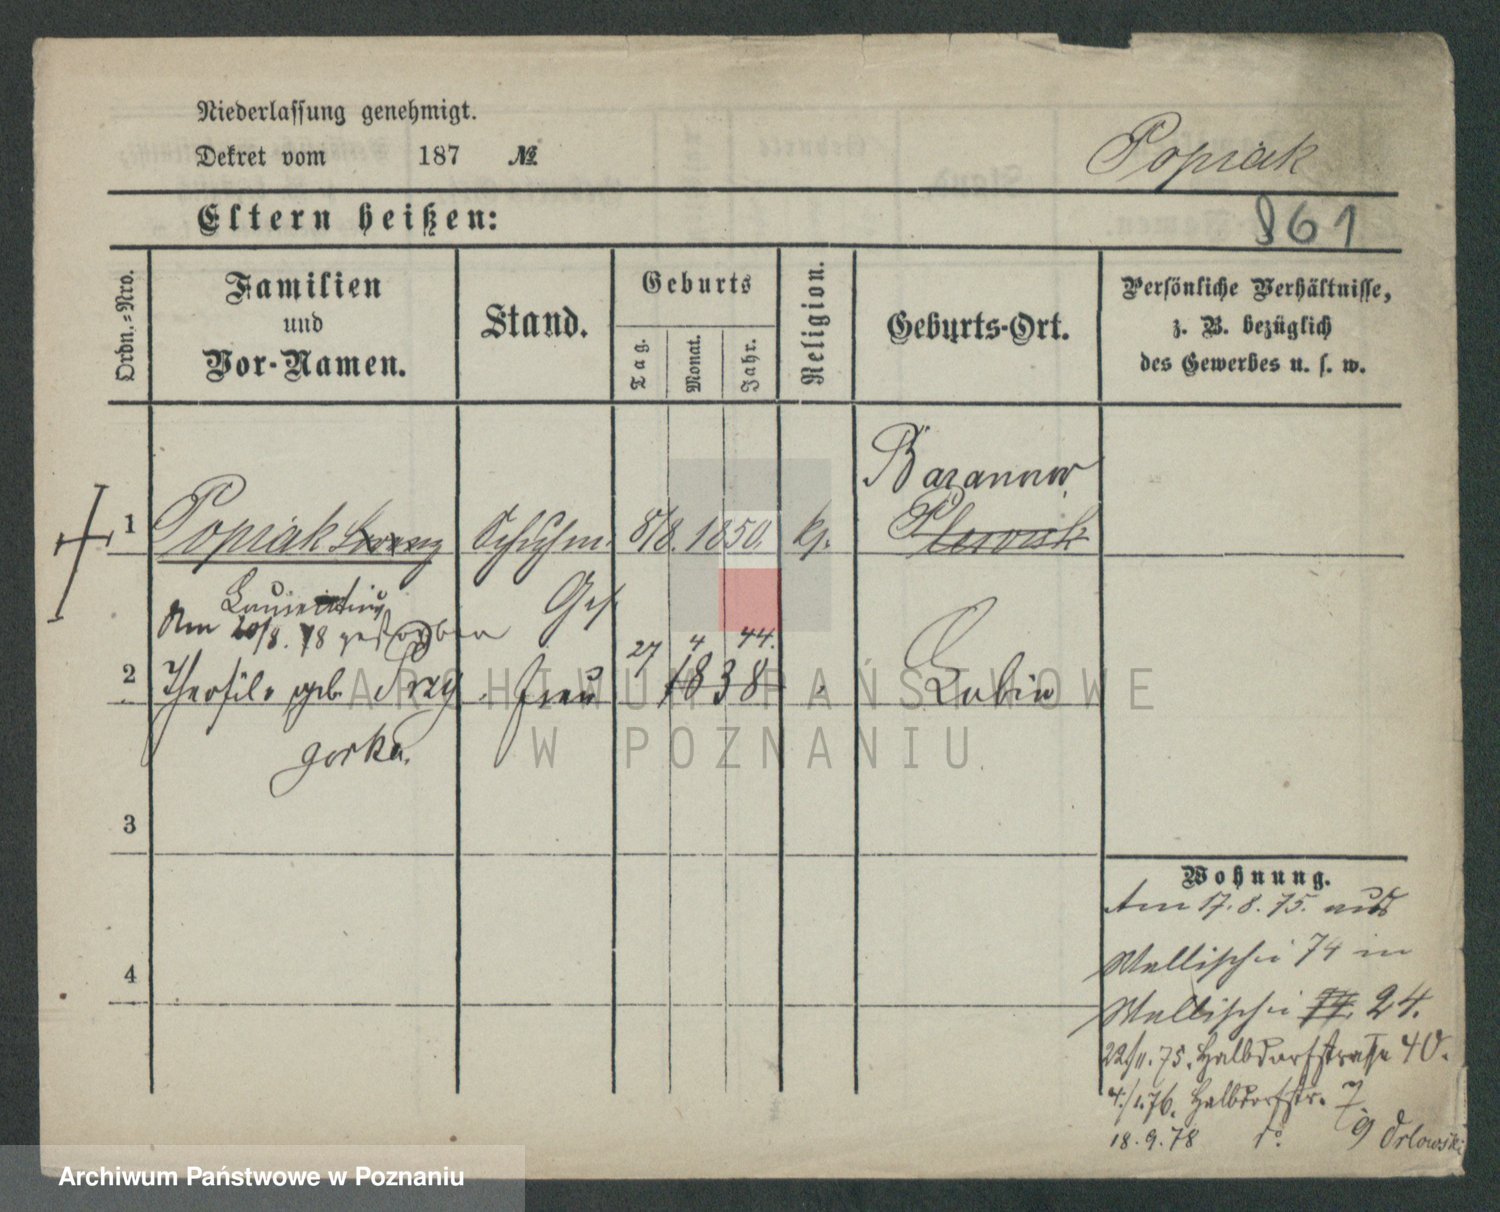 Niederlassung genehmigt.
Dekret vom 187 №
Popiak
Eltern heißen:
861
Ordn.-Nro.
Familien
und
Vor-Namen.
Stand.
Geburts
Tag.
Monat.
Jahr.
Religion.
Geburts-Ort.
Persönliche Verhältnisse,
z. B. bezüglich
des Gewerbes u. s. w.
Baranow
1 Popiak Lorenz Schuhm. 8/8. 1850. kj. Plewisk
Laurentius Ges.
Am 20/8. 78 gestorben
27 4 44.
2 Theofil. geb. Przy frau 1838 Lubin
gorka.
3
4
Wohnung.
Am 17.8.75. aus
Wallischei 74 in
Wallischei 74. 24.
22/11.75. Halbdorfstrasse 40.
4./1.76. Halbdorfstr. 7
18.9.78 do. 9 Orlowski
ARCHIWUM PAŃSTWOWE
W POZNANIU
Archiwum Państwowe w Poznaniu